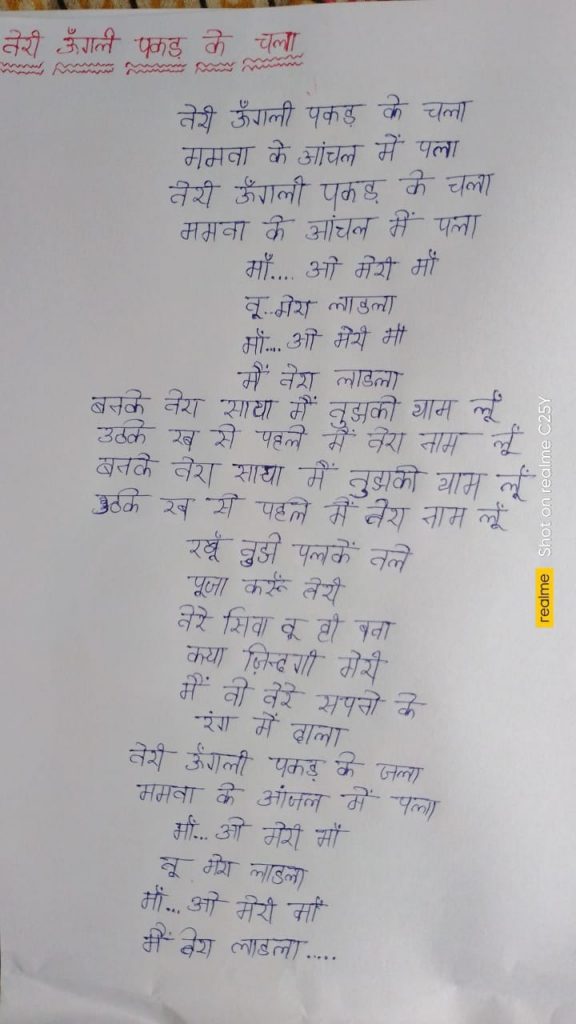 तेरी ऊँगली पकड़ के चला
तेरी ऊँगली पकड़ के चला
ममता के आंचल में पला
तेरी ऊँगली पकड़ के चला
ममता के आंचल में पला
माँ.... ओ मेरी माँ
तू..मेरा लाडला
माँ.... ओ मेरी माँ
मैं तेरा लाडला
बनके तेरा साया मैं तुझको थाम लूँ
उठके रब से पहले मैं तेरा नाम लूँ
बनके तेरा साया मैं तुझको थाम लूँ
उठके रब से पहले मैं तेरा नाम लूँ
रखूँ तुझे पलकें तले
पूजा करूँ तेरी
तेरे सिवा तू ही बता
क्या ज़िन्दगी मेरी
मैं तो तेरे सपनो के
रंग में ढाला
तेरी ऊँगली पकड़ के जला
ममता के आंजल में पला
माँ... ओ मेरी माँ
तू मेरा लाडला
माँ... ओ मेरी माँ
मैं तेरा लाडला.....
realme Shot on realme C25Y